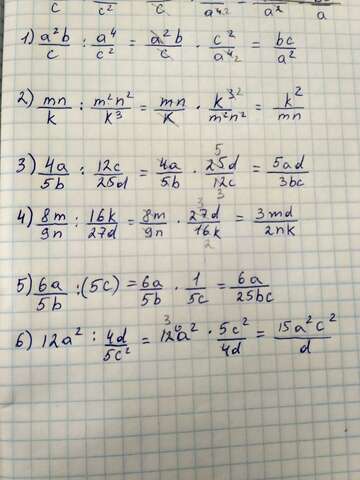 1) a²b/c : a⁴/c² = a²b/c · c²/a⁴ 2 = bc/a²
2) mn/k : m²n²/k³ = mn/k · k³ 2/m²n² = k²/mn
3) 4a/5b : 12c/25d = 4a/5b · 5 25d/12c 3 = 5ad/3bc
4) 8m/9n : 16k/27d = 8m/9n · 3 27d/16k 2 = 3md/2nk
5) 6a/5b : (5c) = 6a/5b · 1/5c = 6a/25bc
6) 12a² : 4d/5c² = 3 12a² · 5c²/4d = 15a²c²/d